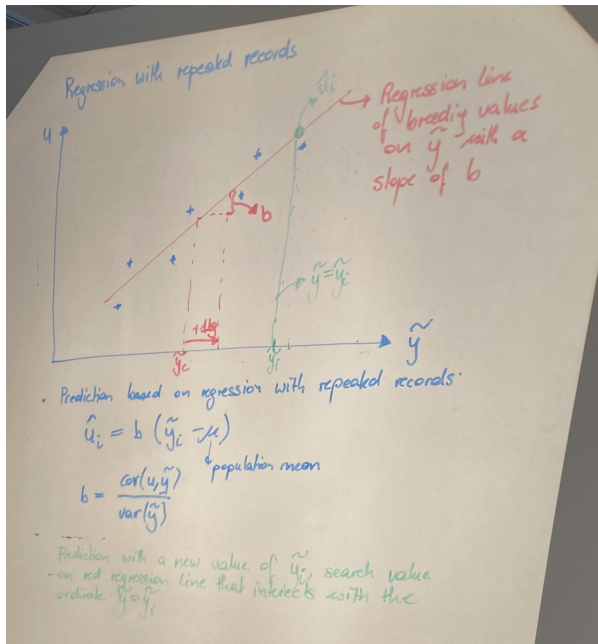 Regression with repeated records
u
û_i
→ Regression line
of breedig values
on ỹ with a
slope of b
b
ỹ = ỹ_i
ỹ_i
ỹ
• Prediction based on regression with repeated records.
û_i = b (ỹ_i - μ)
population mean
b = cov(u,ỹ) / var(ỹ)
Prediction with a new value of ỹ_i, search value
on red regression line that intersects with the
ordinate ỹ = ỹ_i